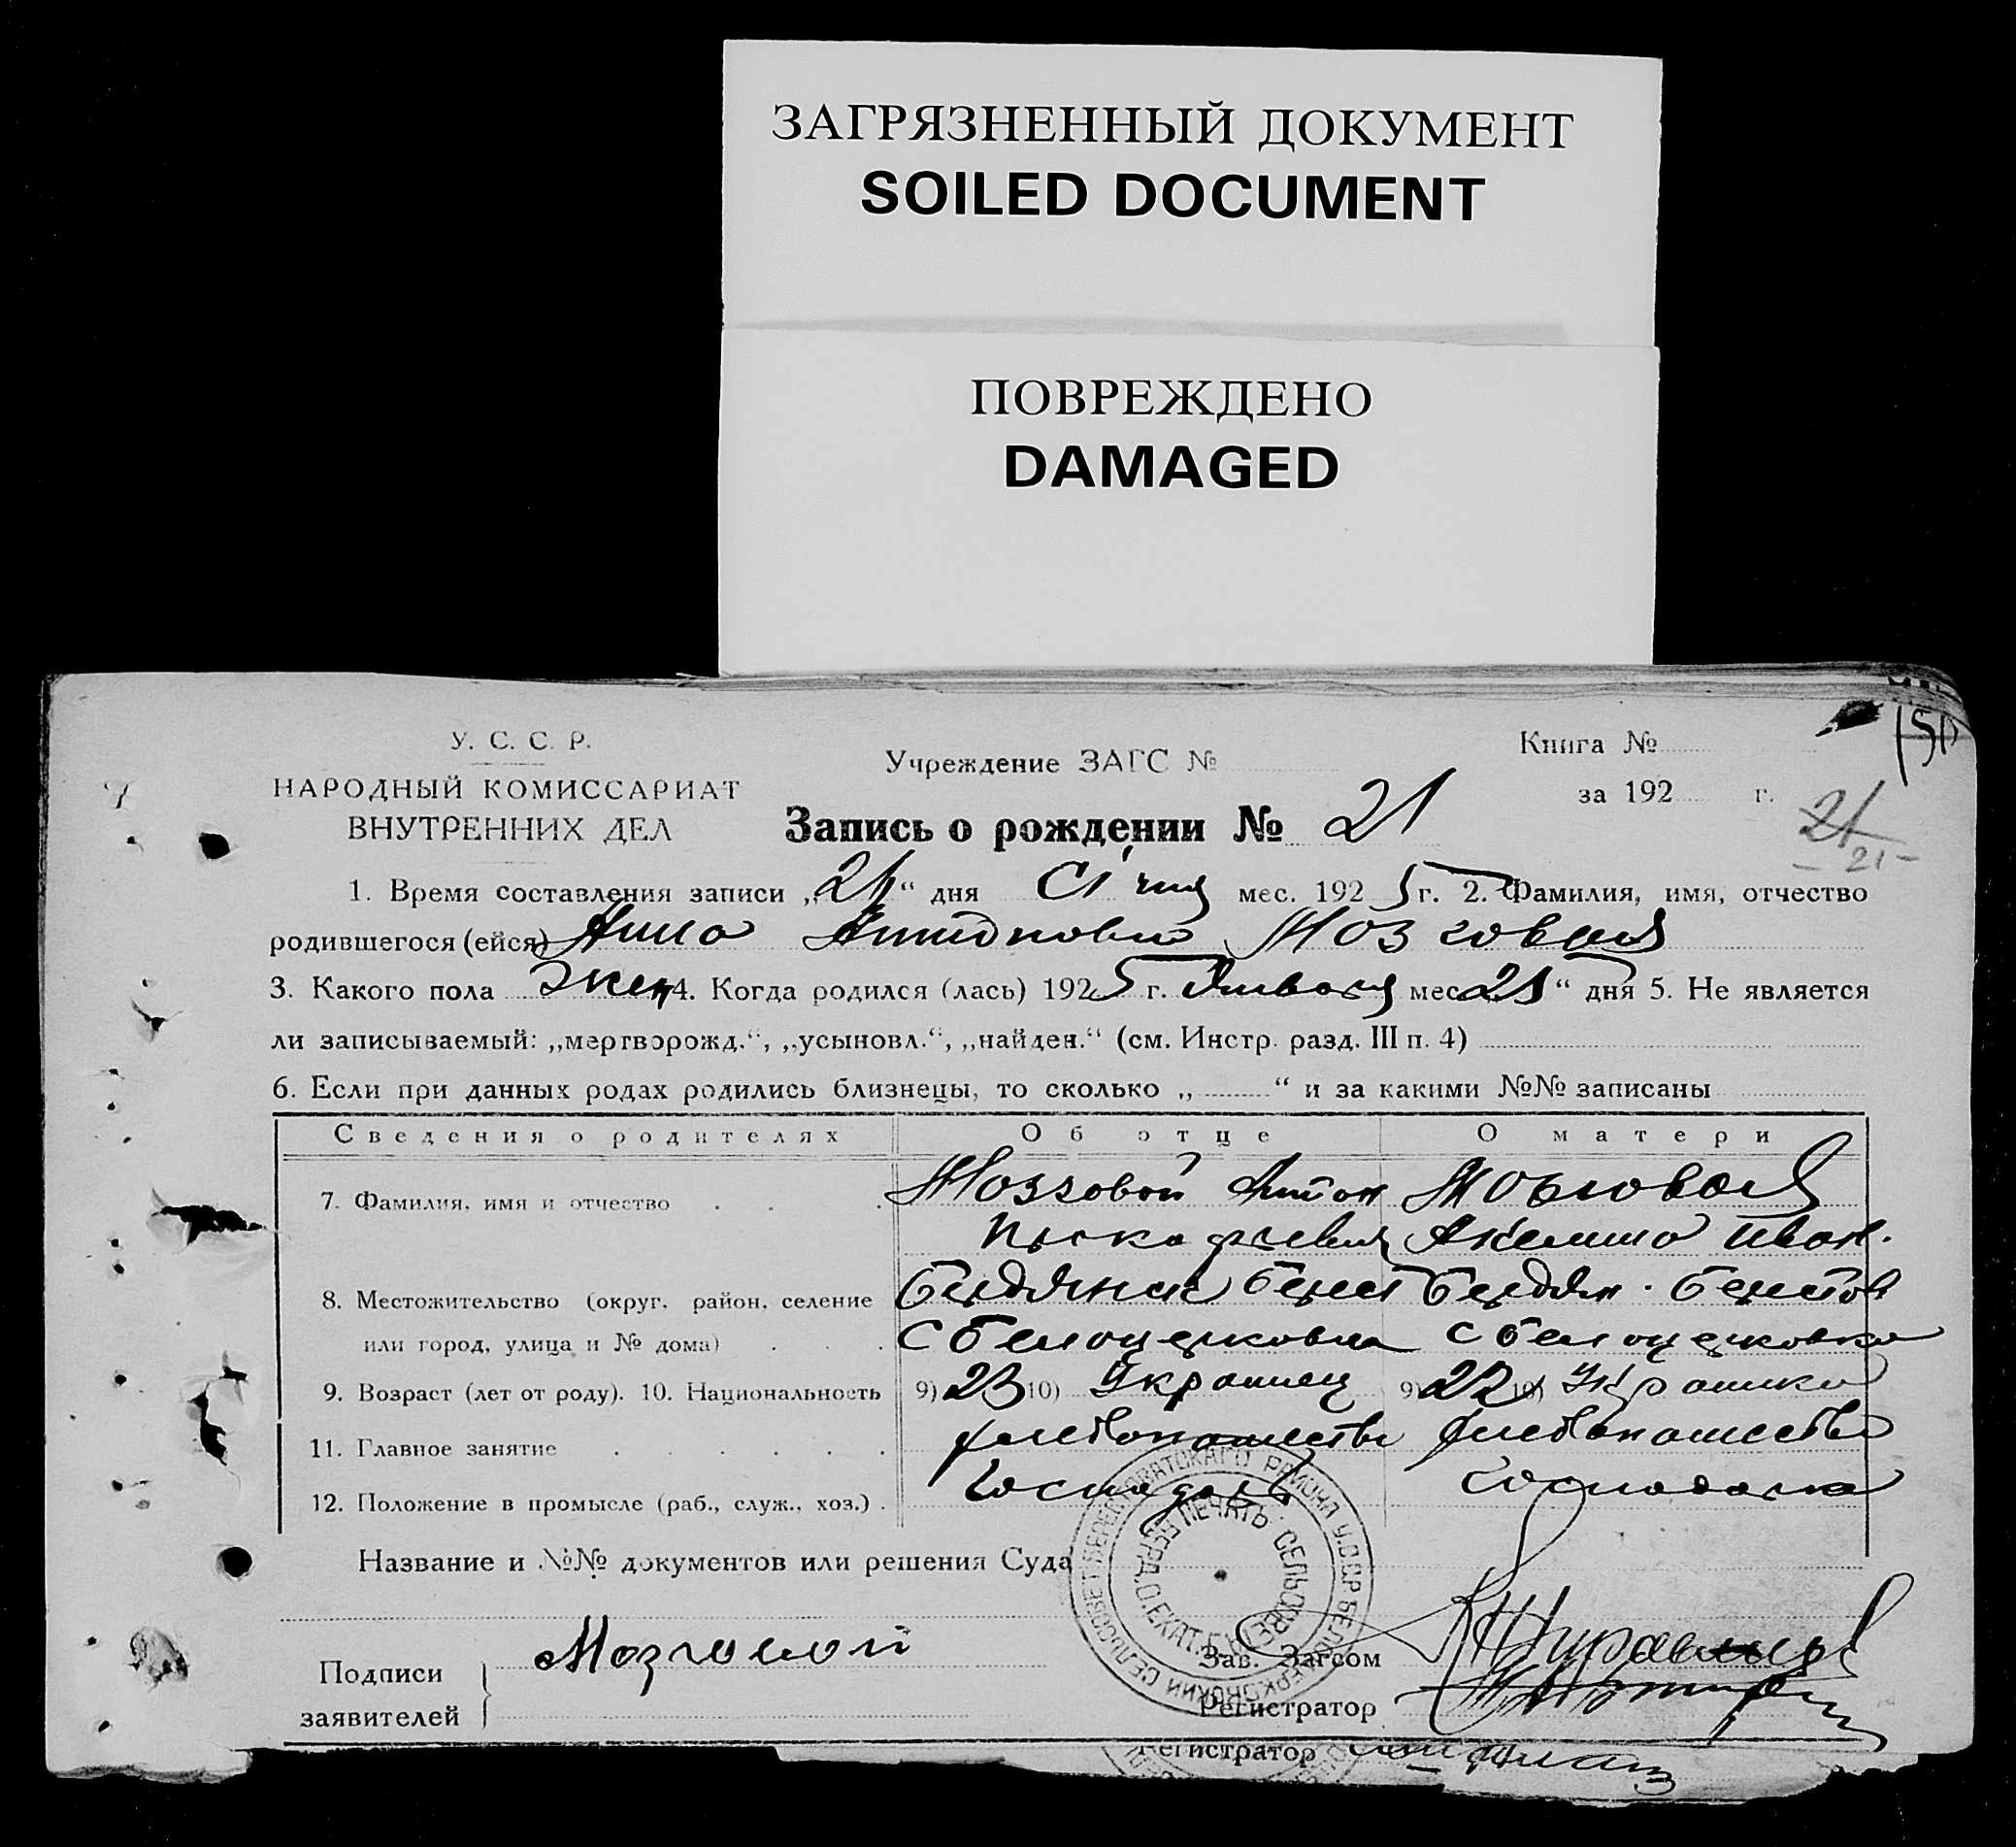 ЗАГРЯЗНЕННЫЙ ДОКУМЕНТ
SOILED DOCUMENT
ПОВРЕЖДЕНО
DAMAGED
У. С. С. Р.
НАРОДНЫЙ КОМИССАРИАТ
ВНУТРЕННИХ ДЕЛ
Учреждение ЗАГС №
Книга №
за 192 г.
21
21
Запись о рождении № 21
1. Время составления записи „ “ дня Січня мес. 192 5 г. 2. Фамилия, имя, отчество
родившегося (ейся) Анна Антоновна Мозговая
3. Какого пола жен 4. Когда родился (лась) 192 5 г. Января мес 21 “ дня 5. Не является
ли записываемый: „мертворожд.“, „усыновл.“, „найден.“ (см. Инстр. разд. III п. 4)
6. Если при данных родах родились близнецы, то сколько „ “ и за какими №№ записаны
Сведения о родителях Об отце О матери
7. Фамилия, имя и отчество Мозговой Антон
Иван.
8. Местожительство (округ, район, селение
или город, улица и № дома) с Белоцерковка с Белоцерковка
9. Возраст (лет от роду). 10. Национальность 9) 23 10) Украинец 9) 22 10) Украинка
11. Главное занятие хлебопашество хлебопашество
12. Положение в промысле (раб., служ., хоз.) Господарь Господарка
Название и №№ документов или решения Суда
Подписи
заявителей
Мозговой
Зав. Загсом
Регистратор
Регистратор